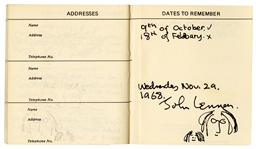 ADDRESSES
Name
Address
Telephone No.
Name
Address
Telephone No.
Name
Address
Telephone No.
DATES TO REMEMBER
9th of October. ✓
18th of Febbary. x
Wednesday Nov. 29.
1968.
John Lennon.